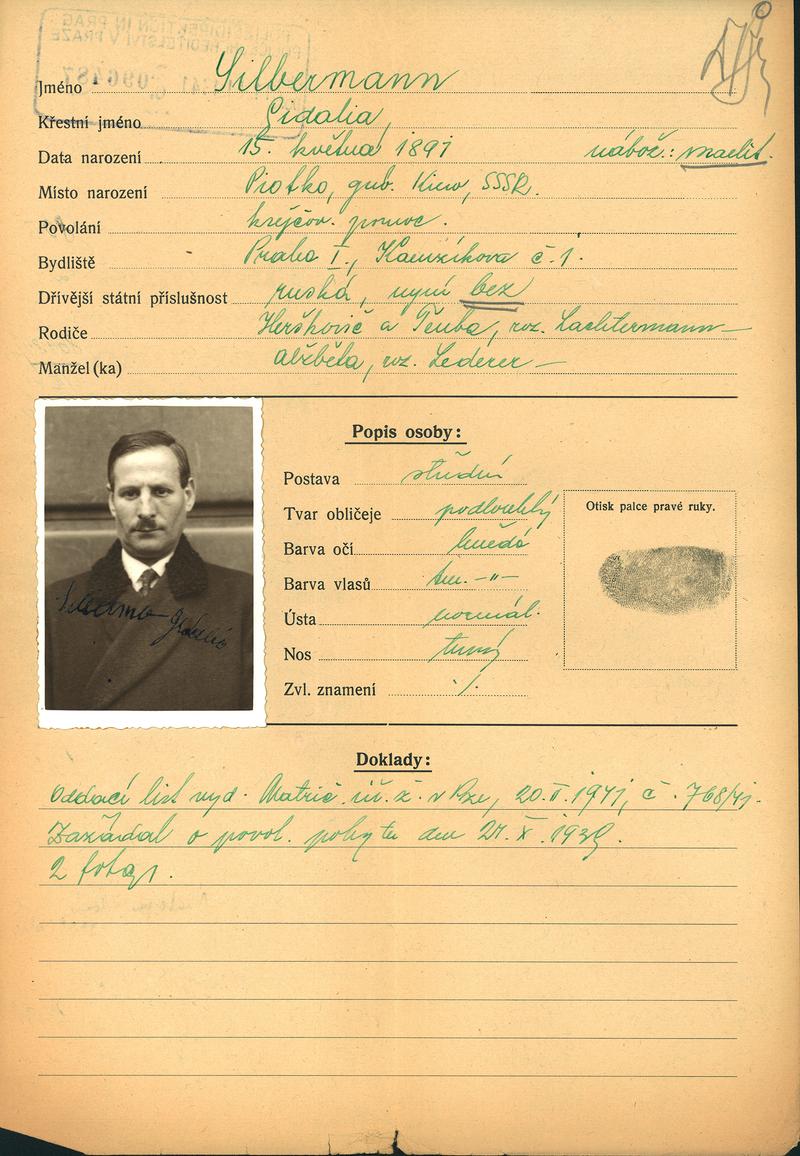 Jméno Silbermann
Křestní jméno Gidalia
Data narození 15. května 1891 nábož.: israelit.
Místo narození Piatka, gub. Kiew, SSSR.
Povolání krejčov. pomoc.
Bydliště Praha I., Kamzíkova č. 1.
Dřívější státní příslušnost ruská, nyní bez
Rodiče Herškovič a Teuba, roz. Lachtermann
Manžel (ka) Alžběta, roz. Lederer
Popis osoby:
Postava střední
Tvar obličeje podlouhlý
Barva očí hnědá
Barva vlasů tm. -"-
Ústa normál.
Nos
Zvl. znamení ./.
Otisk palce pravé ruky.
Doklady:
Oddací list vyd. Matrič. úř. ž. v Pze, 20.II.1941, č. 768/41.
Zažádal o povol. pobytu dne 27.X.1939.
2 fotogr.